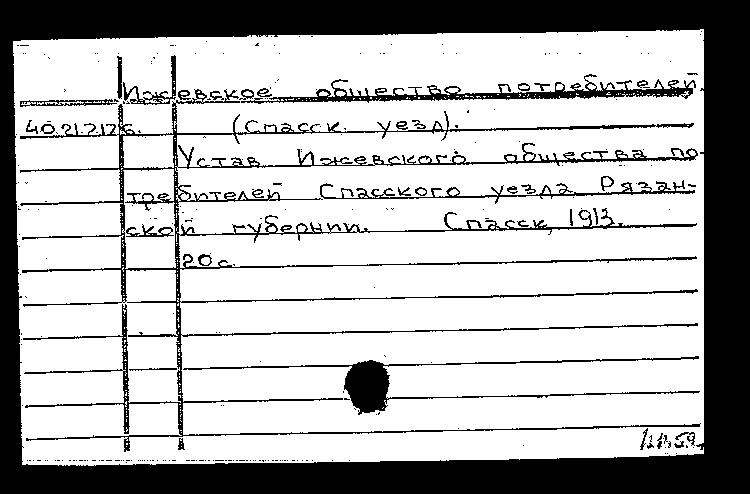 Ижевское общество потребителей.
40.21.2.126. (Спасск. уезд).
Устав Ижевского общества по-
требителей Спасского уезда Рязан-
ской губернии. Спасск, 1913.
20 с.